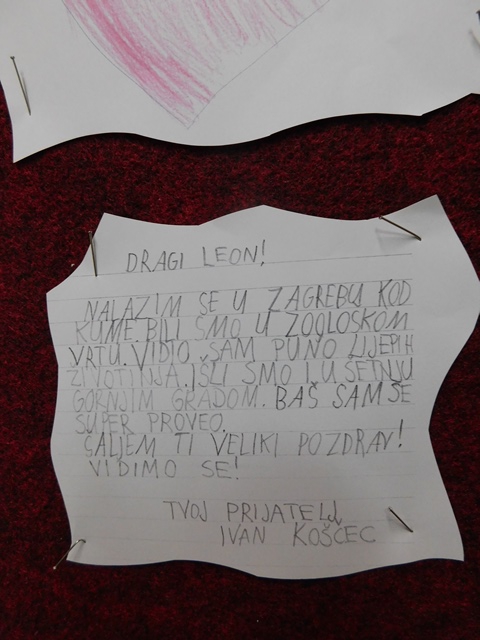 DRAGI LEON!
NALAZIM SE U ZAGREBU KOD
KUME. BILI SMO U ZOOLOSKOM
VRTU. VIDIO SAM PUNO LIJEPIH
ŽIVOTINJA. IŠLI SMO I U ŠETNJU
GORNJIM GRADOM. BAŠ SAM SE
SUPER PROVEO.
ŠALJEM TI VELIKI POZDRAV!
VIDIMO SE!
TVOJ PRIJATELJ
IVAN KOŠČEC